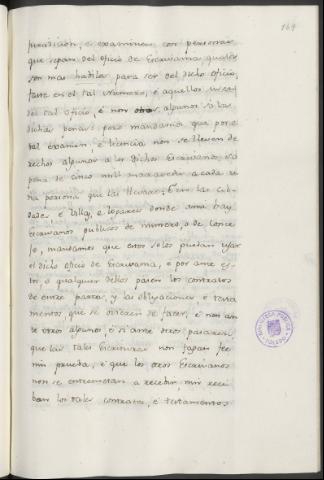 169
jurisdicion, é examinen con personas
que sepan del oficio de Escrivania quales
son mas habiles para ser del dicho oficio,
fasta en el tal numero, é aquellos usen
del tal oficio, é non otros algunos só las
dichas penas: pero mandamos que por el
tal examen é licencia non se lleven de
rechos algunos a los dichos Escrivanos, só
pena de cinco mill maravedis a cada
na persona que las llevare: E en las cib
dades, é Villas, é logares donde aia hay
Escrivanos publicos de numero, o de Conce
jo, mandamos que estos solos puedan usar
el dicho oficio de Escrivania, é por ante es
tos o qualquier dellos pasen los contratos
de entre partes, y las obligaciones é testa
mentos que se ovieren de facer, é non an
te otros algunos, é si ante otros pasaren
que las tales Escrituras non fagan fee
nin prueba, é que los otros Escrivanos
non se entremetan a recebir, nin reci
ban los tales contratos, é testamentos
BIBLIOTECA PUBLICA
TOLEDO